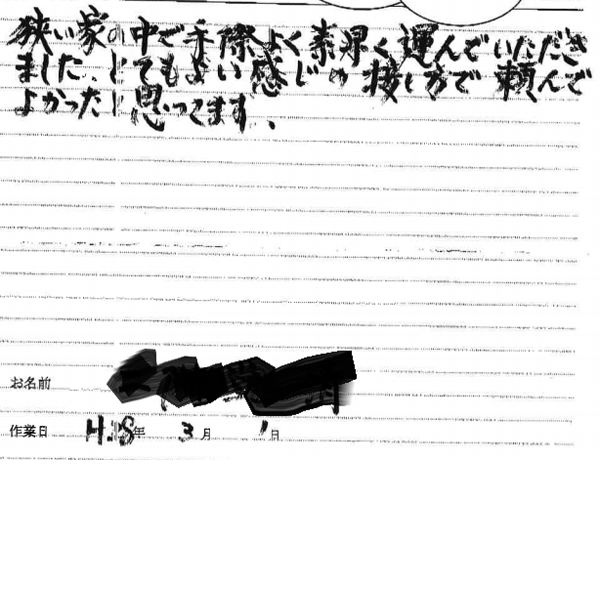 狭い家の中で手際よく素早く運んでいただき
ました、とてもよい感じの接し方で頼んで
よかったと思ってます、
お名前
作業日 H.18年 3月 1日